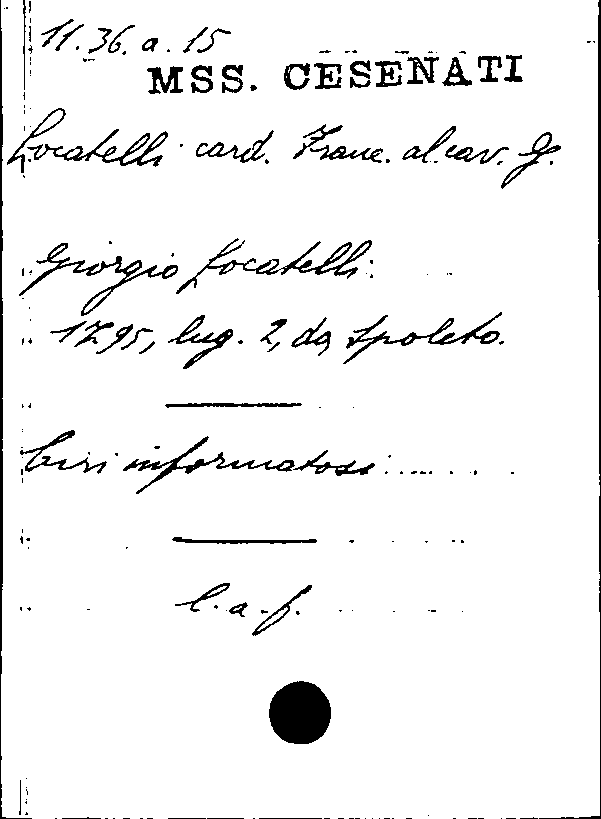 11.36.a.15
MSS. CESENATI
Locatelli card. Franc. al cav. G.
Giorgio Locatelli.
1795, lug. 2, da Spoleto.
informatosi
l. a. f.